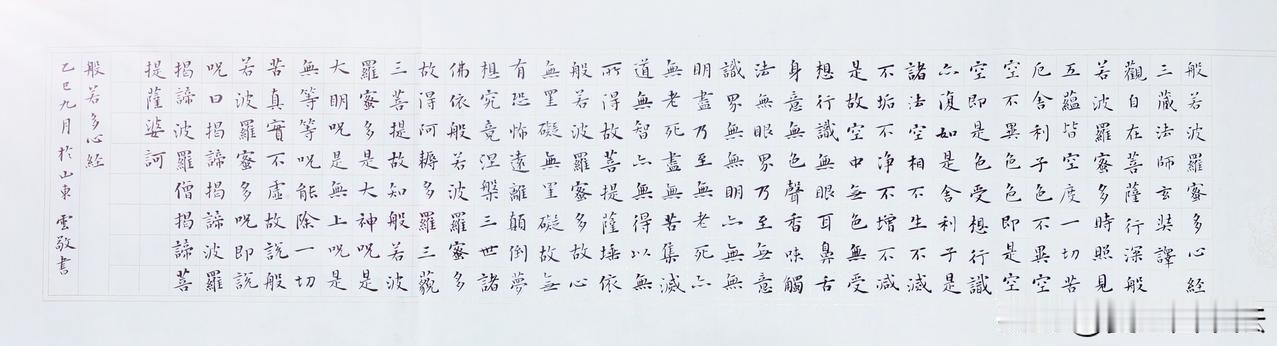 般若波羅蜜多心經
三藏法師玄奘譯
觀自在菩薩行深般
若波羅蜜多時照見
五蘊皆空度一切苦
厄舍利子色不異空
空不異色色即是空
空即是色受想行識
亦復如是舍利子是
諸法空相不生不滅
不垢不净不增不減
是故空中无色無受
想行識無眼耳鼻舌
身意無色聲香味觸
法無眼界乃至无意
識界無無明亦無無
明盡乃至無老死亦
無老死盡無苦集滅
道無智亦無得以無
所得故菩提薩埵依
般若波羅蜜多故心
無罣礙無罣礙故無
有恐怖遠離顛倒夢
想究竟涅槃三世諸
佛依般若波羅蜜多
故得阿耨多羅三藐
三菩提故知般若波
羅蜜多是大神呪是
大明呪是無上呪是
無等等呪能除一切
苦真實不虛故說般
若波羅蜜多呪即說
呪曰揭諦揭諦波羅
揭諦波羅僧揭諦菩
提薩婆訶
般若多心經
乙巳九月於山東雲敬書